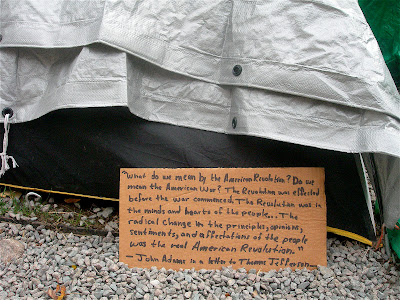 "What do we mean by the American Revolution? Do we
mean the American War? The Revolution was effected
before the war commenced. The Revolution was in
the minds and hearts of the people... The
radical change in the principles, opinions,
sentiments, and affectations of the people
was the real American Revolution."
- John Adams in a letter to Thomas Jefferson -